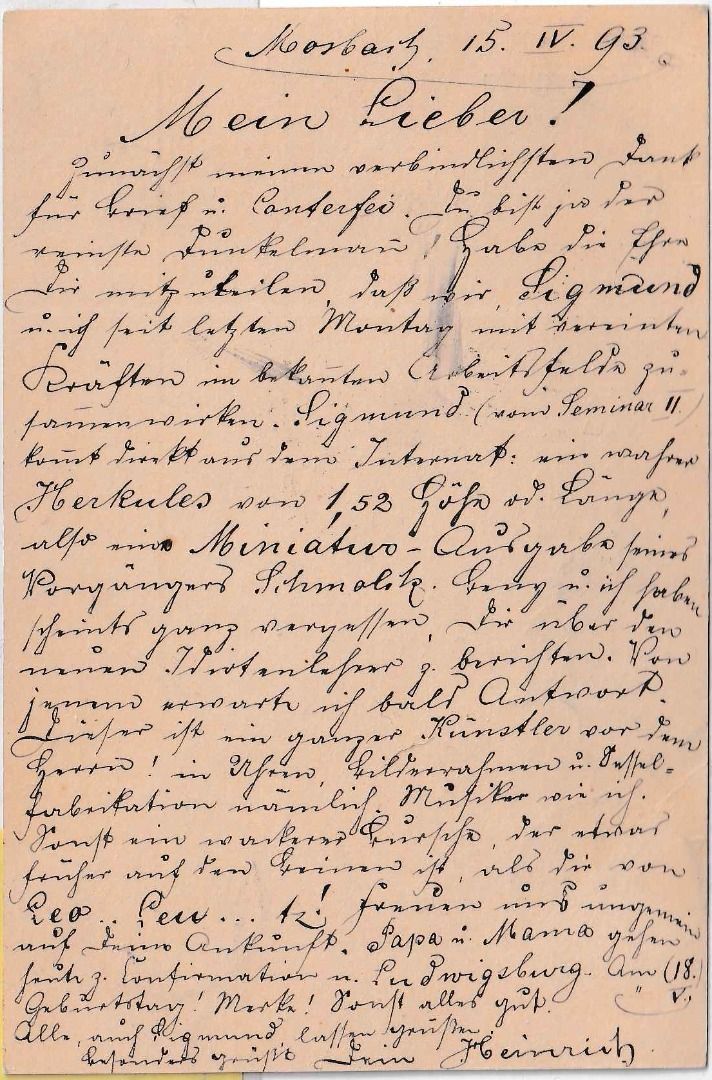 Mosbach, 15. IV. 93.
Mein Lieber!
Zunächst meinen verbindlichsten Dank
für Brief u. Conterfei. Du bist ja der
reinste Dunkelmañ! Habe die Ehre
Dir mitzuteilen, daß wir, Sigmund
u. ich seit letzten Montag mit vereinten
Kräften im bekañten Arbeitsfelde zu-
sam̄enwirken. Sigmund (vom Seminar II.)
kom̄t direkt aus dem Internat: ein wahrer
Herkules von 1,52 Höhe od. Länge,
also eine Miniatur-Ausgabe seines
Vorgängers Schmolck. Beny u. ich haben
scheints ganz vergessen, Dir über den
neuen Idiotenlehrer z. berichten. Von
jenem erwarte ich bald Antwort.
Dieser ist ein ganzer Künstler vor dem
Herrn! in Uhren, Bilderrahmen u. Sessel-
fabrikation nämlich. Musiker wie ich.
Sonst ein wackerer Bursche, der etwas
früher auf den Beinen ist, als die von
Leo.. Leu... tz! Freuen uns ungemein
auf Deine Ankunft. Papa u. Mama gehen
heute z. Confirmation n. Ludwigsburg. Am (18.
V.)
Geburtstag! Merke! Sonst alles gut.
Alle, auch Sigmund, lassen grüßen,
besonders grüßt Dein Heinrich.